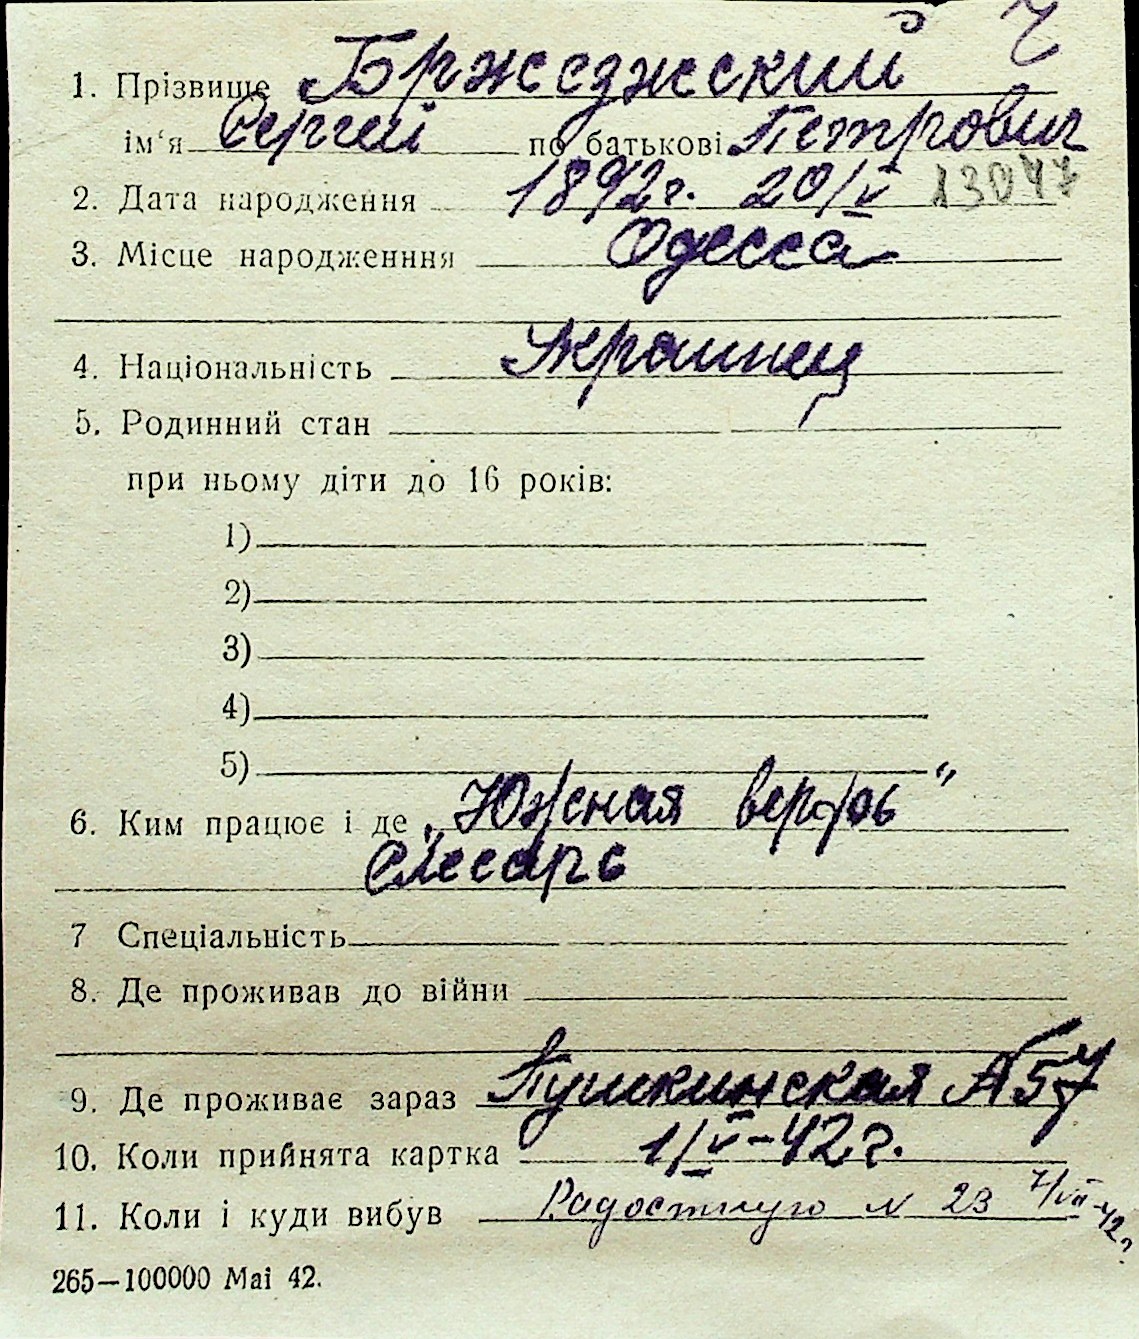 1. Прізвище Бржезжский
ім'я Сергей по батькові Петрович
2. Дата народження 1892г. 20/V 13047
3. Місце народженння Одесса
4. Національність Украинец
5. Родинний стан
при ньому діти до 16 років:
1)
2)
3)
4)
5)
6. Ким працює і де „Южная верфь"
слесарь
7 Спеціальність
8. Де проживав до війни
9. Де проживає зараз Пушкинская 57
10. Коли прийнята картка 1/V-42г.
11. Коли і куди вибув Радостную N 23 7/VII-42г
265—100000 Mai 42.